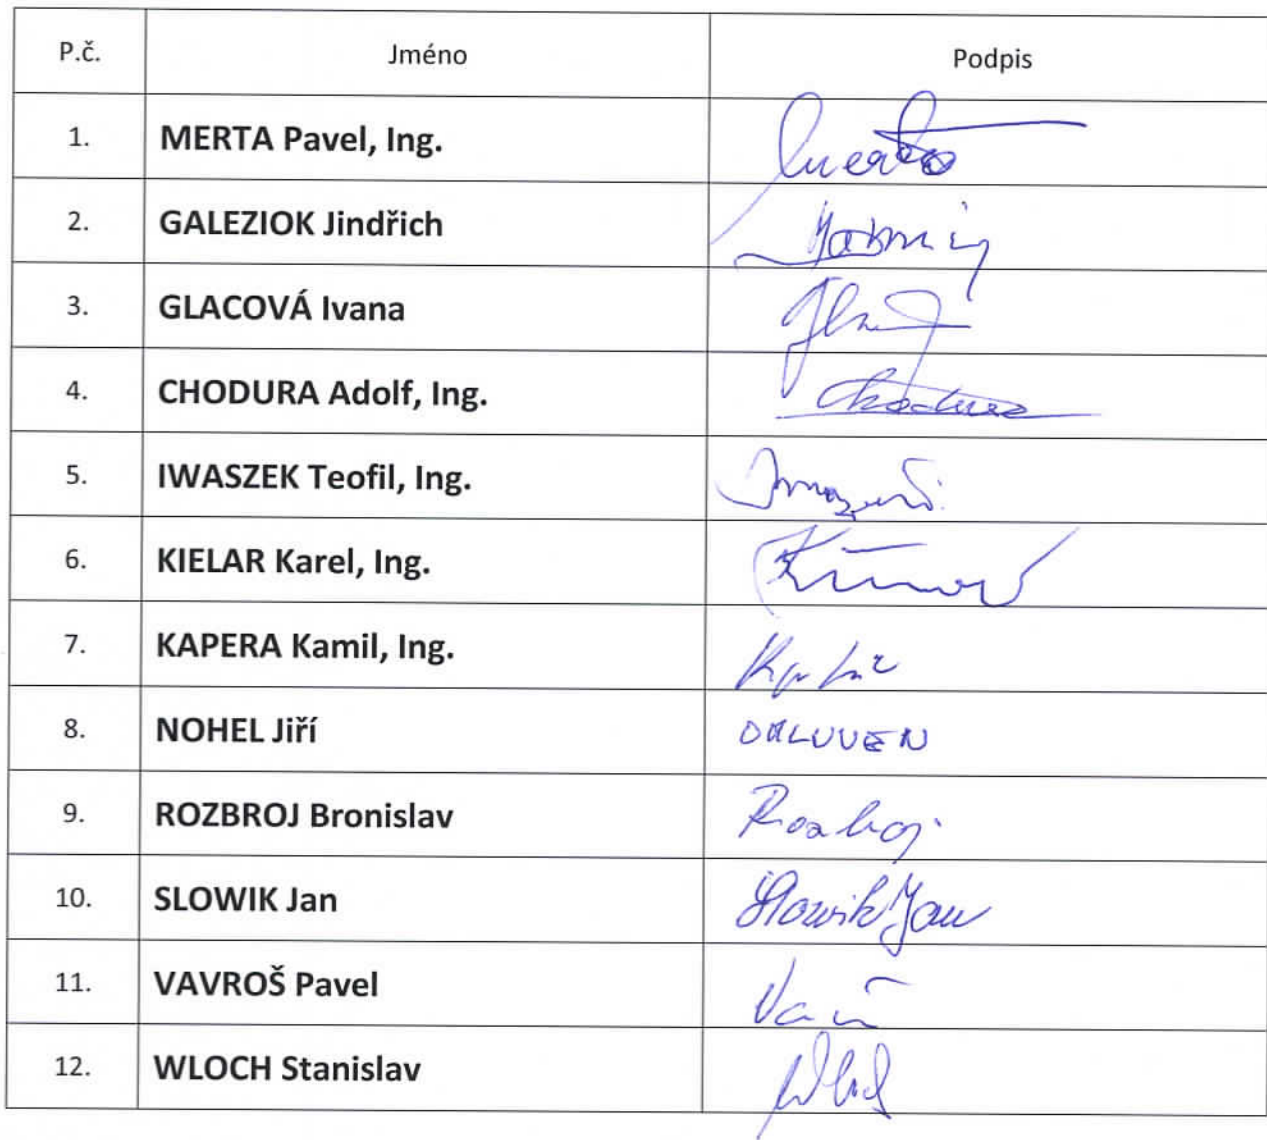 P.č. Jméno Podpis
1. MERTA Pavel, Ing. Merta
2. GALEZIOK Jindřich
3. GLACOVÁ Ivana
4. CHODURA Adolf, Ing. Chodura
5. IWASZEK Teofil, Ing.
6. KIELAR Karel, Ing.
7. KAPERA Kamil, Ing.
8. NOHEL Jiří OMLUVEN
9. ROZBROJ Bronislav Rozbroj
10. SLOWIK Jan Slowik Jan
11. VAVROŠ Pavel
12. WLOCH Stanislav